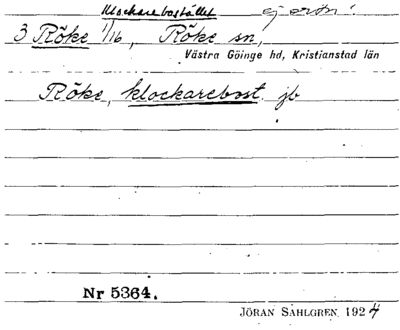 Klockarebostället ej orön.
3 Röke 1/16, Röke sn,
Västra Göinge hd, Kristianstad län
Röke, klockarebost. jb
Nr 5364.
JÖRAN SAHLGREN 1924